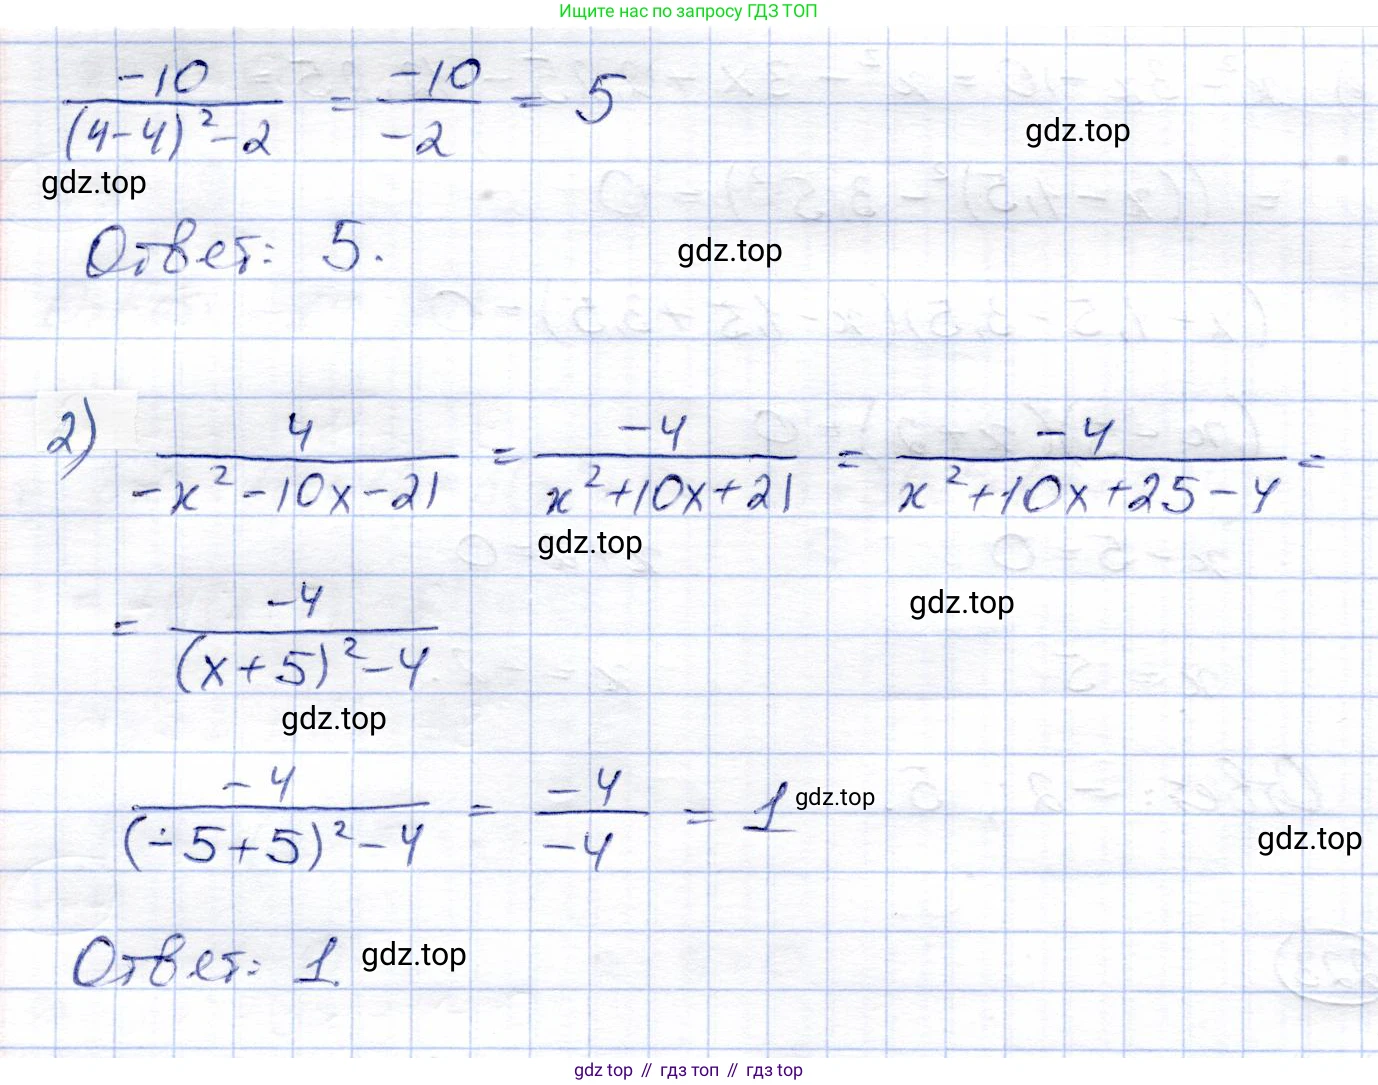 Ищите нас по запросу ГДЗ ТОП
-10/((4-4)²-2) = -10/-2 = 5
gdz.top
gdz.top
Ответ: 5.
gdz.top
2) 4/(-x²-10x-21) = -4/(x²+10x+21) = -4/(x²+10x+25-4) =
gdz.top
gdz.top
= -4/((x+5)²-4)
gdz.top
-4/((-5+5)²-4) = -4/-4 = 1
gdz.top
gdz.top
Ответ: 1.
gdz.top
gdz top // гдз топ // гдз top